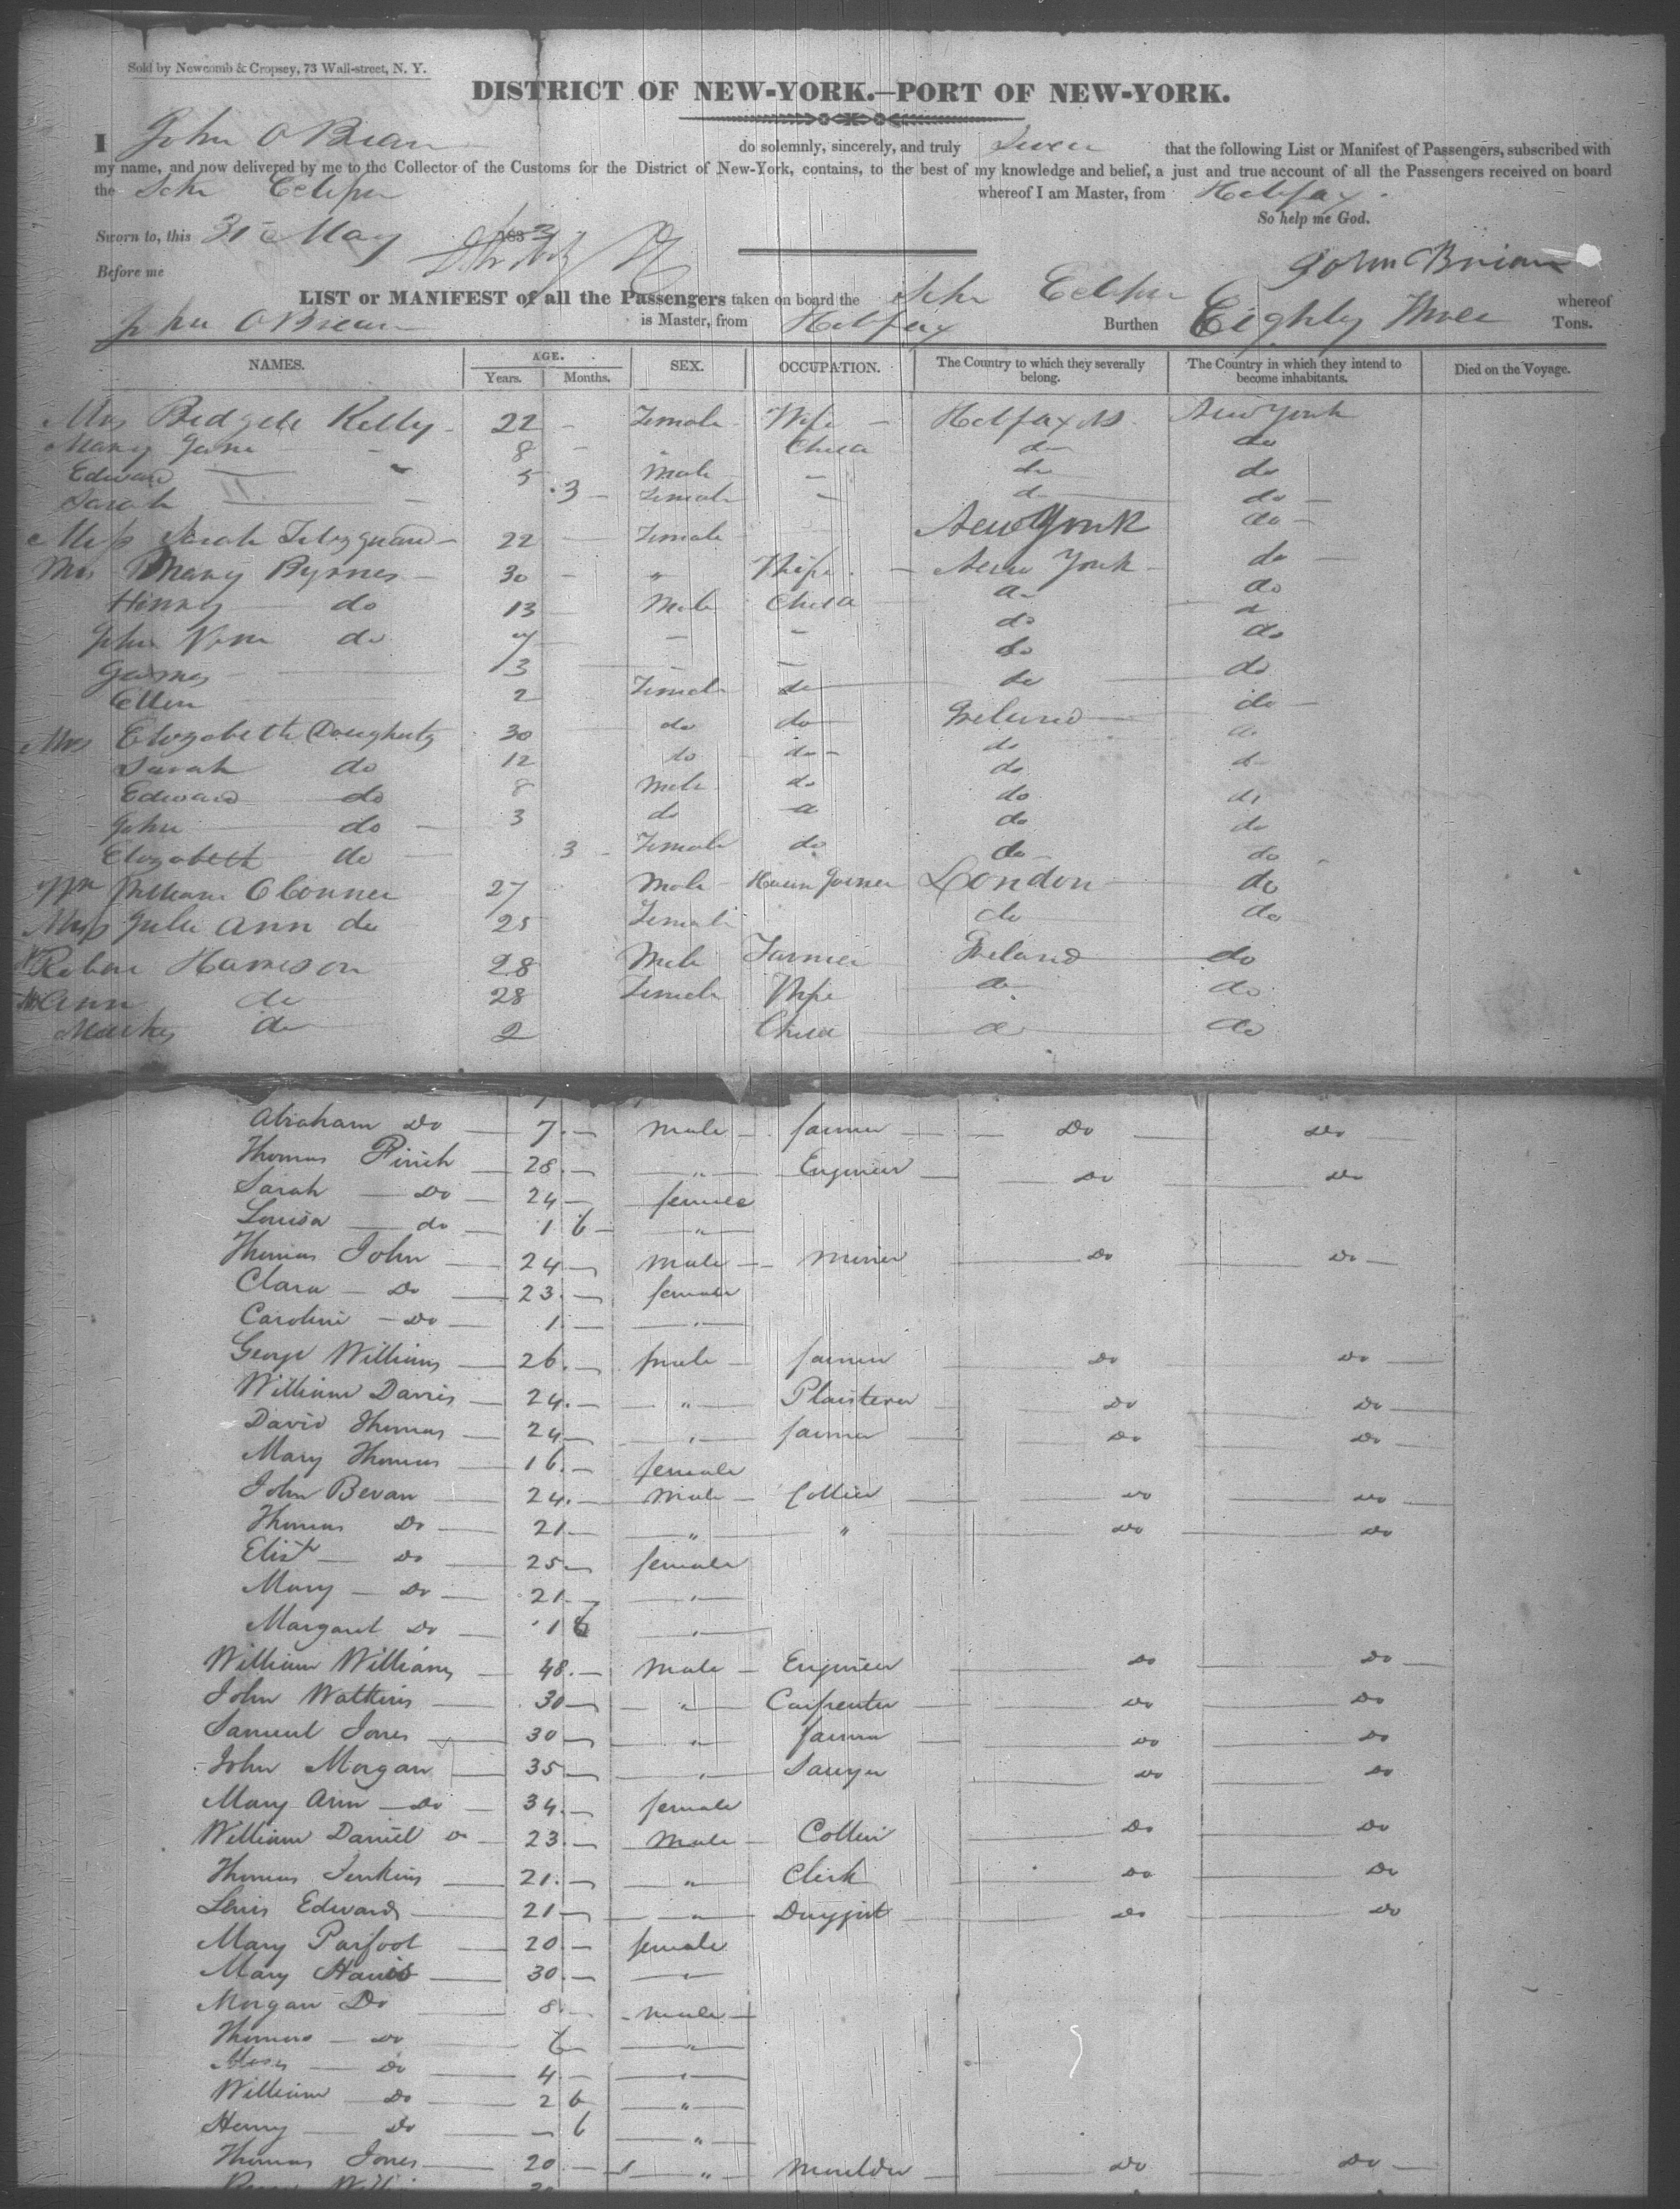 Sold by Newcomb & Cropsey, 73 Wall-street, N. Y.
DISTRICT OF NEW-YORK.—PORT OF NEW-YORK.
I John O Brien do solemnly, sincerely, and truly Swear that the following List or Manifest of Passengers, subscribed with
my name, and now delivered by me to the Collector of the Customs for the District of New-York, contains, to the best of my knowledge and belief, a just and true account of all the Passengers received on board
the Schr Eclipse whereof I am Master, from Halifax.
So help me God.
Sworn to, this 31st May 183
Before me
John OBrian
LIST or MANIFEST of all the Passengers taken on board the Schr Eclipse whereof
John OBrien is Master, from Halifax Burthen Eighty Three Tons.
NAMES. AGE. SEX. OCCUPATION. The Country to which they severally belong. The Country in which they intend to become inhabitants. Died on the Voyage.
Years. Months.
Mrs Kelly 22 - Female Wife - Halifax NS New York
Mary Jane 8 - Child do do
Edward 5 Male - do do
Sarah 3 - Female - do do
Miss Sarah 22 Female New York do
Mrs Mary Byrnes 30 - " Wife New York do
Henry do 13 Male Child do do
John do 7 - - do do
James 3 - - do do
Ellen 2 Female do do do
Mrs Elizabeth Dougherty 30 do do Ireland do
Sarah do 12 do do do do
Edward do 8 Male do do do
John do 3 do do do do
Elizabeth do 3 Female do do do
William OConner 27 Male London do
Julia Ann do 25 Female do do
Harrison 28 Male Farmer Ireland do
Ann do 28 Female Wife do do
do 2 Child do do
Abraham Do 7 - male farmer Do Do
Thomas Finch 28 - " Engineer Do Do
Sarah Do 24 - female
Louisa do 1 6 "
Thomas John 24 - male miner Do Do
Clara Do 23 - female
Caroline Do 1 - "
George Williams 26 - male farmer Do Do
William Davis 24 - " Plaisterer Do Do
David Thomas 24 - " farmer Do Do
Mary Thomas 16 - female
John Bevan 24 - male Collier Do Do
Thomas Do 21 - " " Do Do
Elizth Do 25 - female
Mary Do 21 - "
Margaret Do 1 6 "
William Williams 48 - male Engineer Do Do
John Watkins 30 - " Carpenter Do Do
Samuel Jones 30 - " farmer Do Do
John Morgan 35 - " Sawyer Do Do
Mary Ann Do 34 - female
William Daniel Do 23 - male Collier Do Do
Thomas Jenkins 21 - " Clerk Do Do
Lewis Edwards 21 - " Druggist Do Do
Mary Parfoot 20 - female
Mary Harris 30 - "
Morgan Do 8 - male
Thomas Do 6 "
Moses Do 4 - "
William Do 2 6 "
Henry Do - 6 "
Thomas Jones 20 - " Moulder Do Do